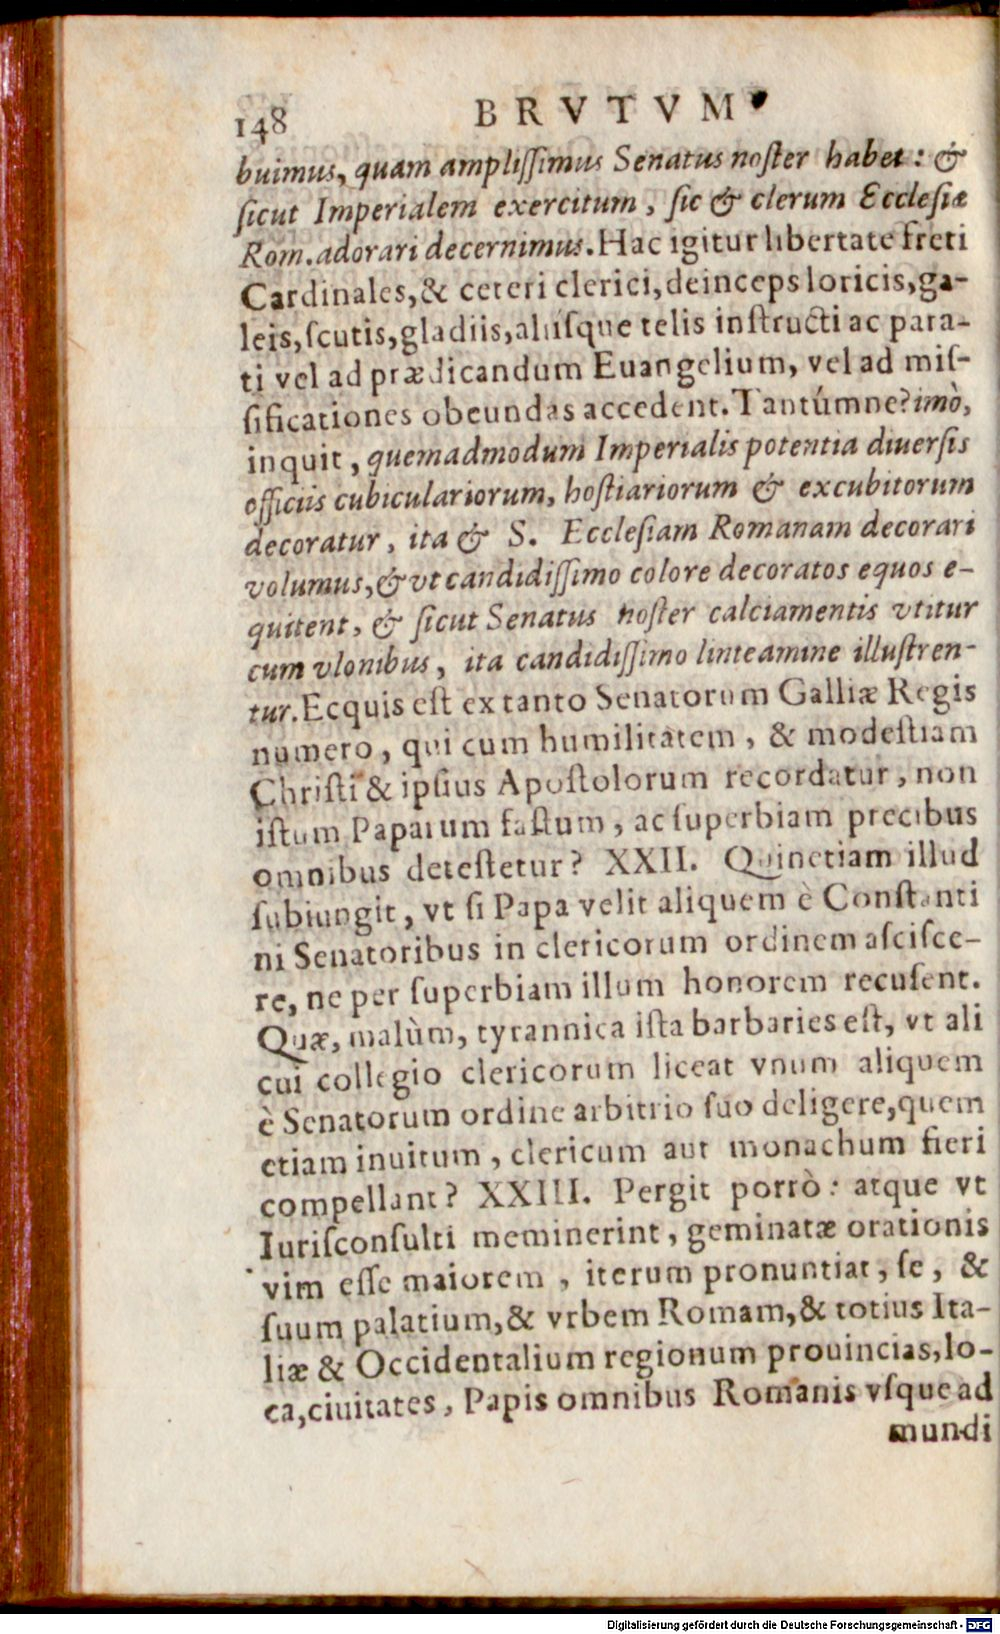 148 BRVTVM
buimus, quam ampliſſimus Senatus noſter habet: &
ſicut Imperialem exercitum, ſic & clerum Eccleſiæ
Rom. adorari decernimus. Hac igitur libertate freti
Cardinales, & ceteri clerici, deinceps loricis, ga-
leis, ſcutis, gladiis, aliiſque telis inſtructi ac para-
ti vel ad prædicandum Euangelium, vel ad miſ-
ſificationes obeundas accedent. Tantúmne? imò,
inquit, quemadmodum Imperialis potentia diuerſis
officiis cubiculariorum, hoſtiariorum & excubitorum
decoratur, ita & S. Eccleſiam Romanam decorari
volumus, & vt candidiſſimo colore decoratos equos e-
quitent, & ſicut Senatus noſter calciamentis vtitur
cum vlonibus, ita candidiſſimo linteamine illuſtren-
tur. Ecquis eſt ex tanto Senatorum Galliæ Regis
numero, qui cum humilitatem, & modeſtiam
Chriſti & ipſius Apoſtolorum recordatur, non
iſtum Paparum faſtum, ac ſuperbiam precibus
omnibus deteſtetur? XXII. Quinetiam illud
ſubiungit, vt ſi Papa velit aliquem è Conſtanti
ni Senatoribus in clericorum ordinem aſciſce-
re, ne per ſuperbiam illum honorem recuſent.
Quæ, malùm, tyrannica iſta barbaries eſt, vt ali
cui collegio clericorum liceat vnum aliquem
è Senatorum ordine arbitrio ſuo deligere, quem
etiam inuitum, clericum aut monachum fieri
compellant? XXIII. Pergit porrò: atque vt
Iuriſconſulti meminerint, geminatæ orationis
vim eſſe maiorem, iterum pronuntiat, ſe, &
ſuum palatium, & vrbem Romam, & totius Ita-
liæ & Occidentalium regionum prouincias, lo-
ca, ciuitates, Papis omnibus Romanis vſque ad
mundi
Digitalisierung gefördert durch die Deutsche Forschungsgemeinschaft - DFG